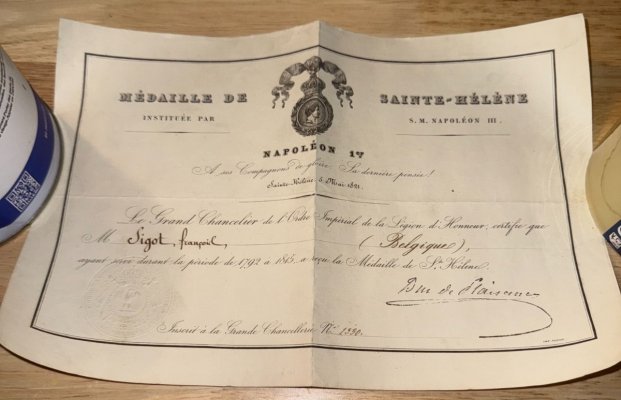 MÉDAILLE DE SAINTE-HÉLÈNE
INSTITUÉE PAR S. M. NAPOLÉON III.
NAPOLÉON 1er
A ses Compagnons de gloire, Sa dernière pensée!
Sainte-Hélène 5 Mai 1821.
Le Grand Chancelier de l'Ordre Impérial de la Légion d'Honneur, certifie que
M Sigot, françois, (Belgique),
ayant servi durant la période de 1792 à 1815, a reçu la Médaille de Ste Hélène.
Duc de Plaisance
Inscrit à la Grande Chancellerie No 1330.